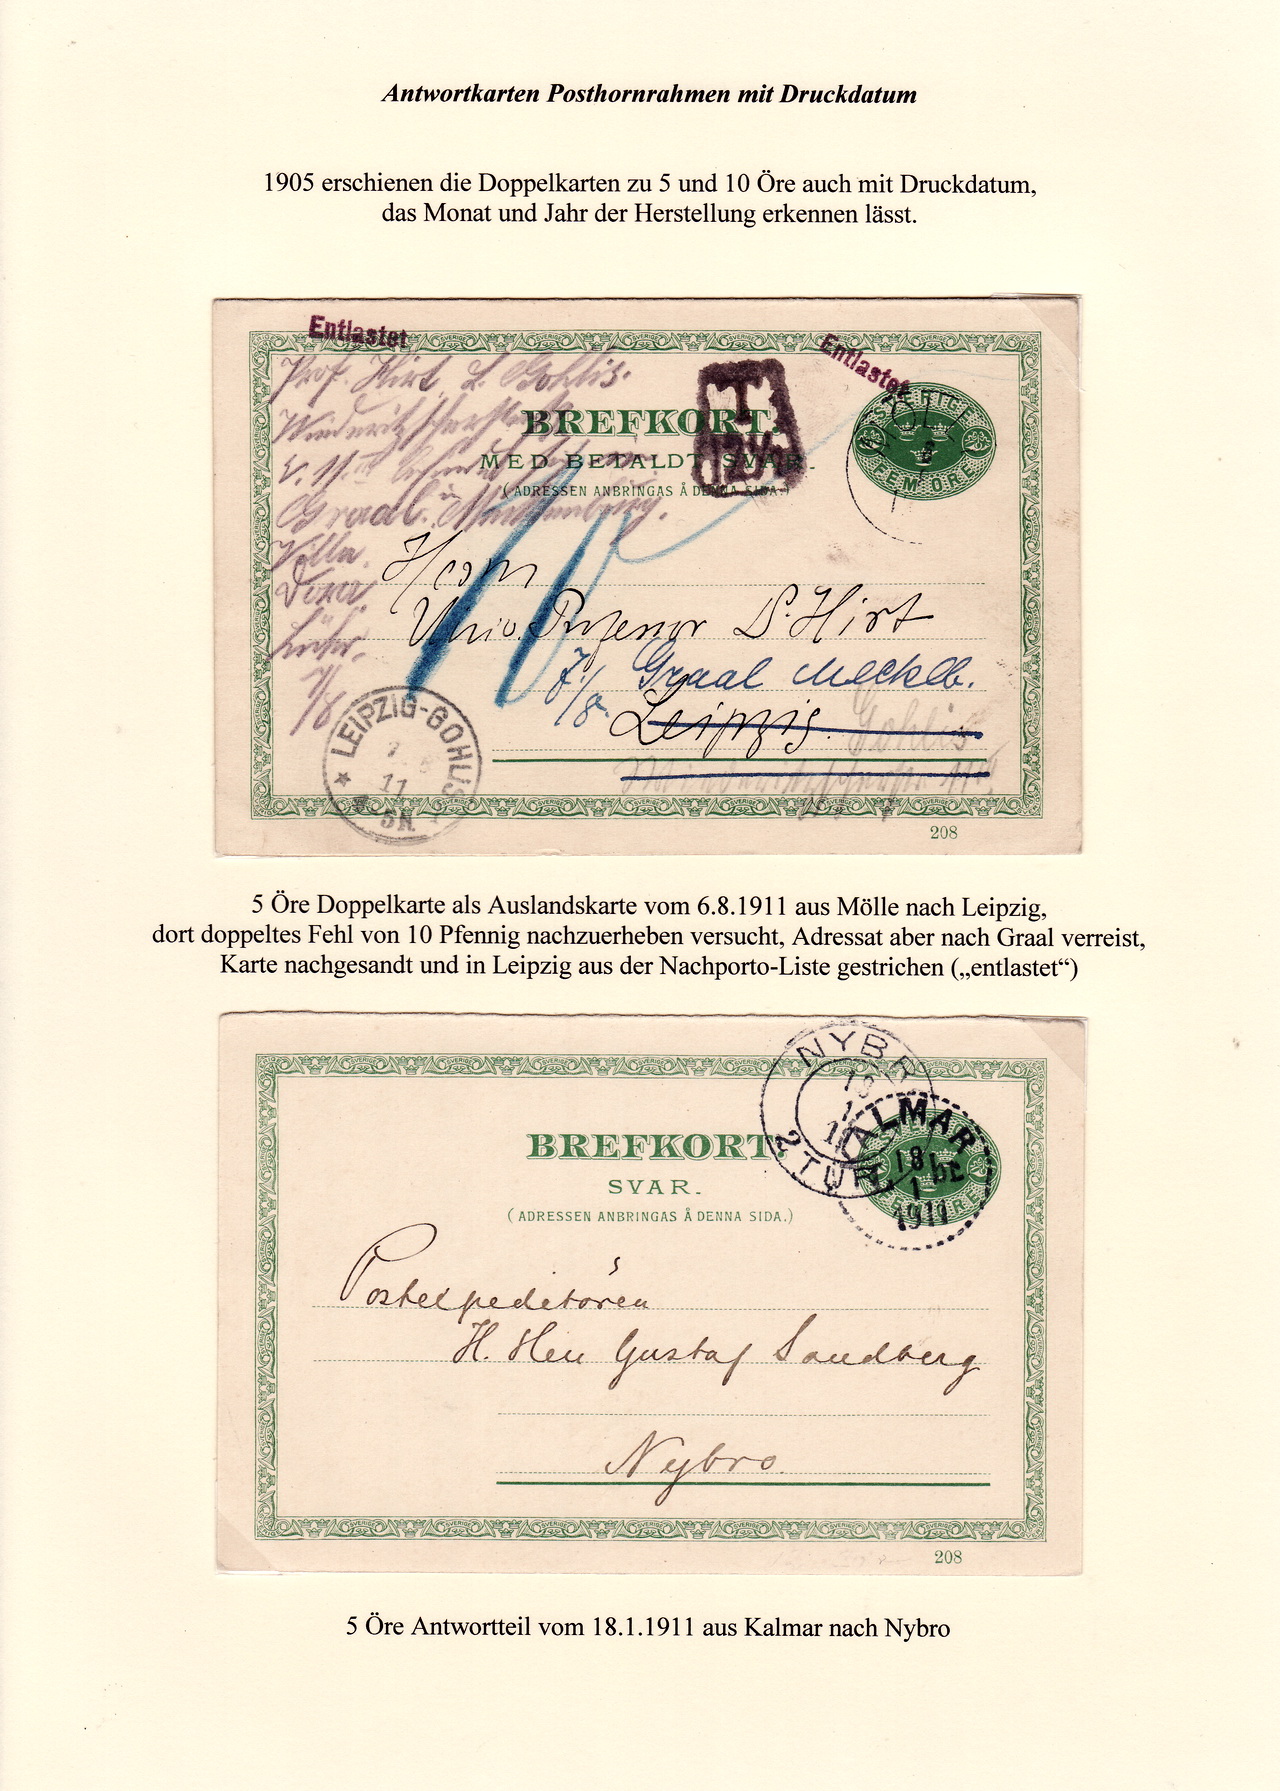 Antwortkarten Posthornrahmen mit Druckdatum
1905 erschienen die Doppelkarten zu 5 und 10 Öre auch mit Druckdatum,
das Monat und Jahr der Herstellung erkennen lässt.
Entlastet
Entlastet
Prof. Hirt L. Gohlis.
T
12½
SVERIGE
FEM ÖRE
BREFKORT.
MED BETALDT SVAR.
(ADRESSEN ANBRINGAS Å DENNA SIDA.)
Graal i. Mecklenburg.
Villa
10
Herrn
Univ. Professor D. Hirt
7/8. Graal Mecklb.
Leipzig. Gohlis
7/8
LEIPZIG-GOHLIS
11
5N.
208
5 Öre Doppelkarte als Auslandskarte vom 6.8.1911 aus Mölle nach Leipzig,
dort doppeltes Fehl von 10 Pfennig nachzuerheben versucht, Adressat aber nach Graal verreist,
Karte nachgesandt und in Leipzig aus der Nachporto-Liste gestrichen („entlastet“)
NYBRO
18
1
11
2 TUR
KALMAR
18
1
1911
BREFKORT.
SVAR.
(ADRESSEN ANBRINGAS Å DENNA SIDA.)
Postexpeditören
H. Herr Gustaf Sandberg
Nybro.
208
5 Öre Antwortteil vom 18.1.1911 aus Kalmar nach Nybro